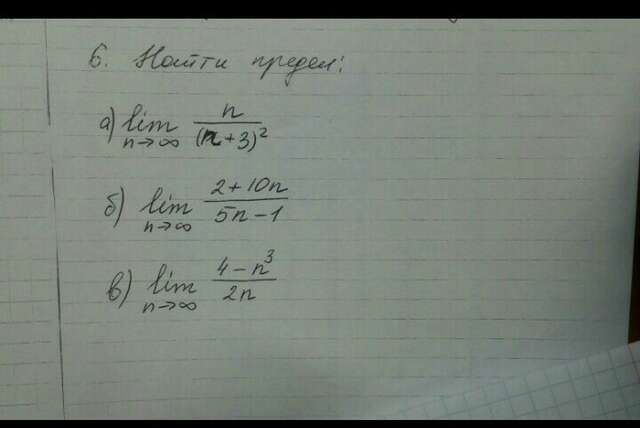 6. Найти предел:
а) lim n→∞ n/(n+3)²
б) lim n→∞ (2+10n)/(5n-1)
в) lim n→∞ (4-n³)/2n